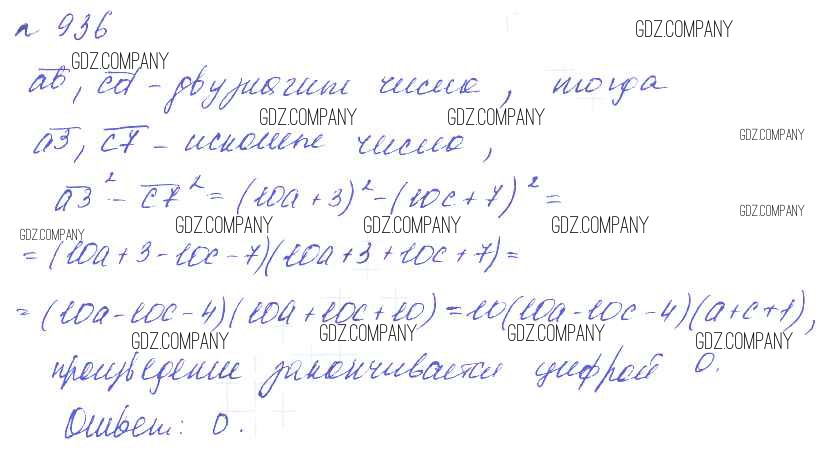 № 936
GDZ.COMPANY
GDZ.COMPANY
ab, cd - двузначные числа, тогда
GDZ.COMPANY GDZ.COMPANY GDZ.COMPANY
a3, c7 - искомые числа,
a3² - c7² = (10a + 3)² - (10c + 7)² =
GDZ.COMPANY
GDZ.COMPANY GDZ.COMPANY GDZ.COMPANY GDZ.COMPANY
= (10a + 3 - 10c - 7)(10a + 3 + 10c + 7) =
= (10a - 10c - 4)(10a + 10c + 10) = 10(10a - 10c - 4)(a + c + 1),
GDZ.COMPANY GDZ.COMPANY GDZ.COMPANY GDZ.COMPANY
произведение заканчивается цифрой 0.
Ответ: 0.